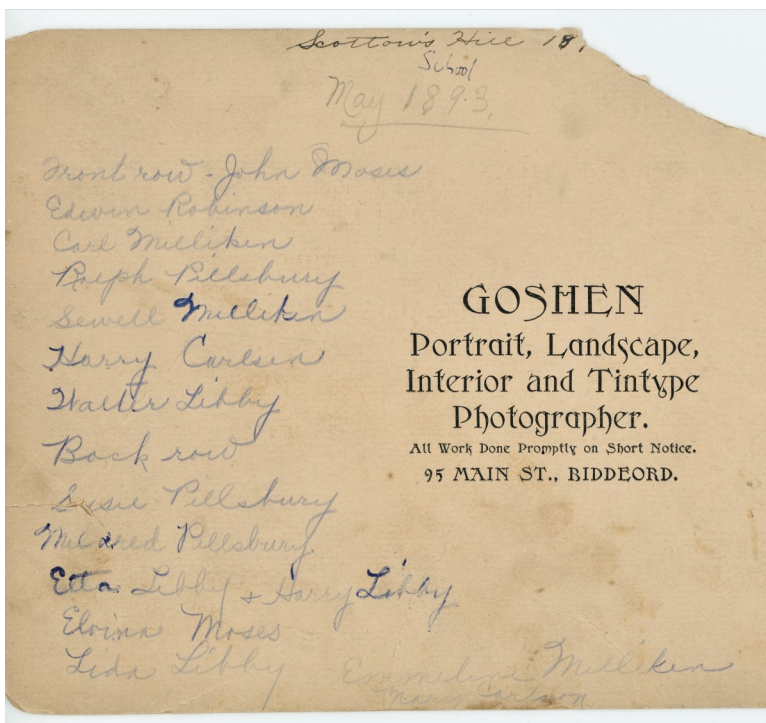 Scottow's Hill 18,
School
May 1893.
Front row - John Moses
Edwin Robinson
Carl Milliken
Ralph Pillsbury
Sewell Milliken
Harry Carlsen
Walter Libby
Back row
Susie Pillsbury
Mildred Pillsbury
Etta Libby + Harry Libby
Elvina Moses
Lida Libby Emmeline Milliken
Mary Carlson
GOSHEN
Portrait, Landscape,
Interior and Tintype
Photographer.
All Work Done Promptly on Short Notice.
95 MAIN ST., BIDDEORD.